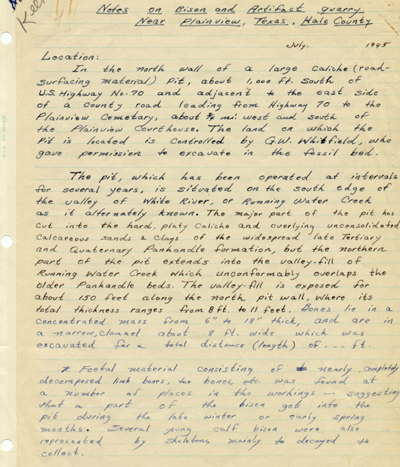 Notes on Bison and Artifact quarry
Near Plainview, Texas. Hale County
July. 1945
Location:
In the north wall of a large caliche (road-
surfacing material) Pit, about 1,000 ft. South of
U.S. Highway No. 70 and adjacent to the east side
of a county road leading from Highway 70 to the
Plainview Cemetary, about mi west and south of
the Plainview Courthouse. The land on which the
Pit is located is controlled by G.W. Whitfield, who
gave permission to excavate in the fossil bed.
The pit, which has been operated at intervals
for several years, is situated on the south edge of
the valley of White River, or Running Water Creek
as it alternately known. The major part of the pit has
cut into the hard, platy caliche and overlying unconsolidated
calcareous sands & clays of the widespread late Tertiary
and Quaternary Panhandle formation, but the northern
part of the pit extends into the valley-fill of
Running Water Creek which unconformably overlaps the
older Panhandle beds. The valley-fill is exposed for
about 150 feet along the north pit wall, where its
total thickness ranges from 8 ft. to 11 feet. Bones lie in a
concentrated mass from 6" to 18" thick, and are in
a narrow, channel about 8 ft. wide which was
excavated for a total distance (length) of ... ft.
* Foetal material consisting of nearly completely
decomposed limb bones, toe bones, etc. was found at
a number of places in the workings — suggesting
that a part of the bison got into the
pit during the late winter or early spring
months. Several young calf bison were also
represented by skeletons mainly to decayed to
collect.